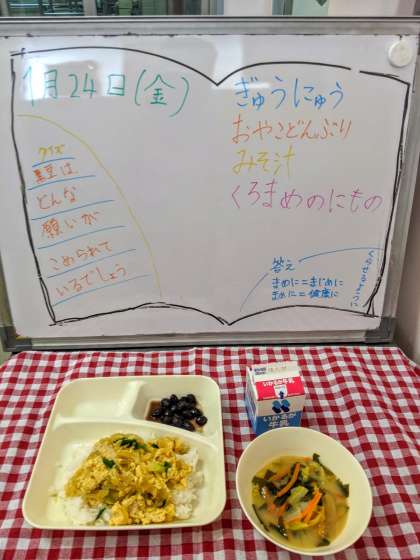 1月24日(金)
クイズ
黒豆は、
どんな
願いが
こめられて
いるでしょう
ぎゅうにゅう
おやこどんぶり
みそ汁
くろまめのにもの
答え
まめに=まじめに
まめに=健康に
くらせるように
いかるが牛乳
いかるが
牛乳